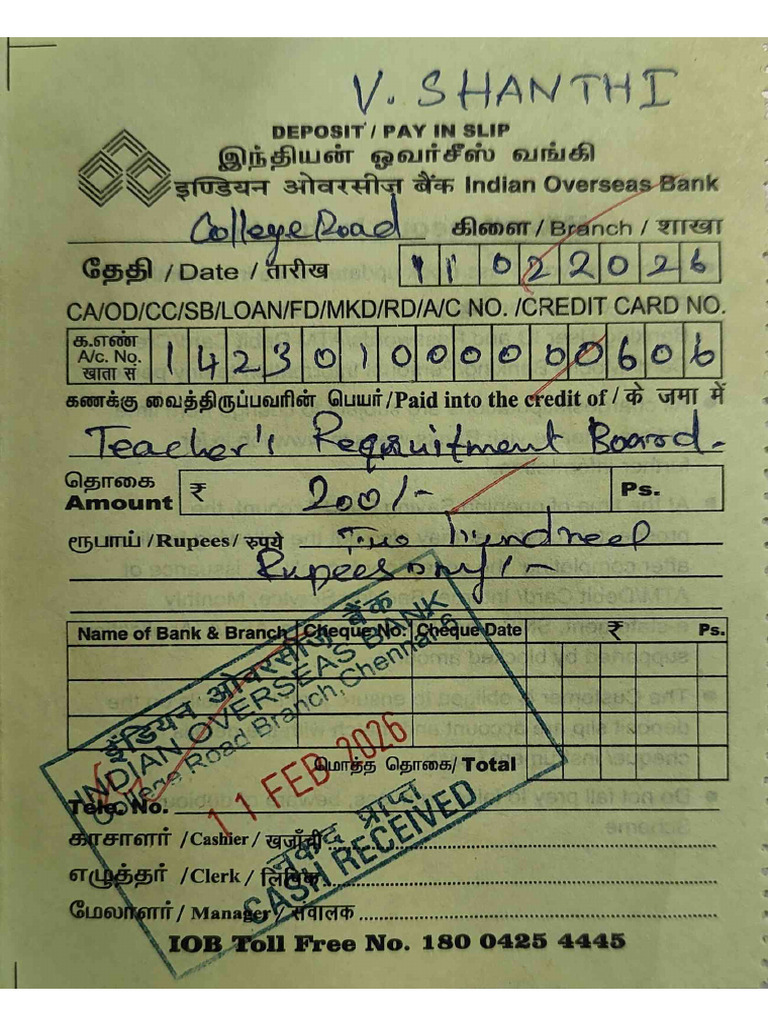 V. SHANTHI
DEPOSIT / PAY IN SLIP
இந்தியன் ஓவர்சீஸ் வங்கி
इण्डियन ओवरसीज़ बैंक Indian Overseas Bank
College Road கிளை / Branch / शाखा
தேதி / Date / तारीख 11 02 2026
CA/OD/CC/SB/LOAN/FD/MKD/RD/A/C NO. /CREDIT CARD NO.
க.எண்
A/c. No. 142301000000606
खाता सं
கணக்கு வைத்திருப்பவரின் பெயர் /Paid into the credit of / के जमा में
Teacher's Requitment Board-
தொகை
Amount ₹ 200/- Ps.
ரூபாய் /Rupees/ रुपये Two Hundred
Rupees only/-
Name of Bank & Branch Cheque No. Cheque Date ₹ Ps.
इंडियन ओवरसीज़ बैंक
INDIAN OVERSEAS BANK
College Road Branch, Chennai-6
11 FEB 2026
மொத்த தொகை/ Total
नकद प्राप्त
CASH RECEIVED
Tele. No.
காசாளர் /Cashier / खजाँची
எழுத்தர் /Clerk / लिपिक
மேலாளர் / Manager / संचालक
IOB Toll Free No. 180 0425 4445